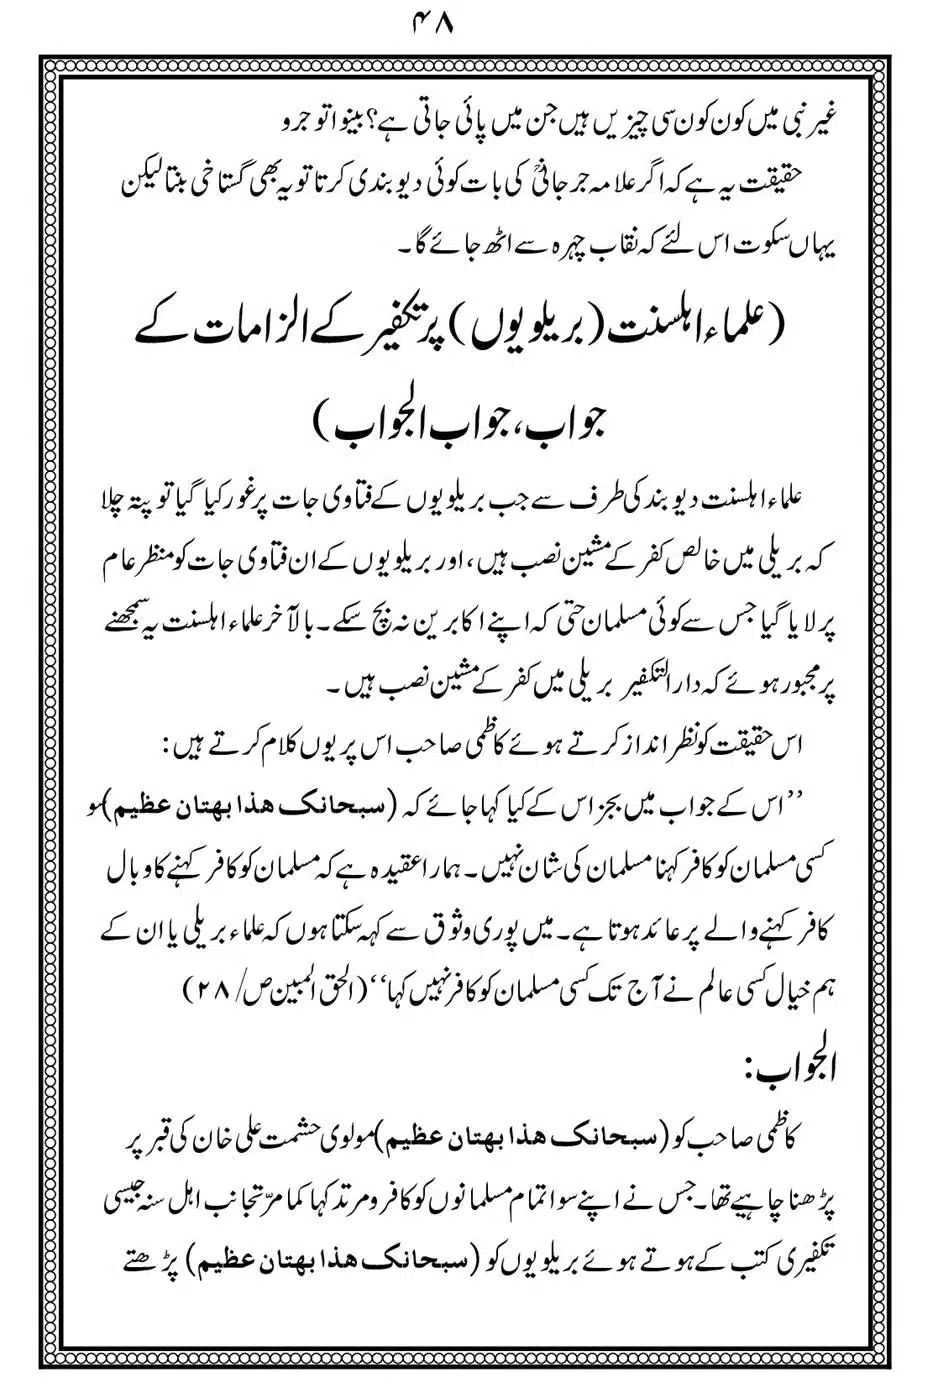 ۴۸
غیر نبی میں کون کون سی چیزیں ہیں جن میں پائی جاتی ہے؟ بینوا تو جرو
حقیقت یہ ہے کہ اگر علامہ جرجانیؒ کی بات کوئی دیوبندی کرتا تو یہ بھی گستاخی بنتا لیکن
یہاں سکوت اس لئے کہ نقاب چہرہ سے اٹھ جائے گا۔
(علماء اہلسنت (بریلویوں) پر تکفیر کے الزامات کے
جواب، جواب الجواب)
علماء اہلسنت دیوبند کی طرف سے جب بریلویوں کے فتاوی جات پر غور کیا گیا تو پتہ چلا
کہ بریلی میں خالص کفر کے مشین نصب ہیں، اور بریلویوں کے ان فتاوی جات کو منظر عام
پر لایا گیا جس سے کوئی مسلمان حتی کہ اپنے اکابرین نہ بچ سکے۔ بالآخر علماء اہلسنت یہ سمجھنے
پر مجبور ہوئے کہ دارالتکفیر بریلی میں کفر کے مشین نصب ہیں۔
اس حقیقت کو نظر انداز کرتے ہوئے کاظمی صاحب اس پر یوں کلام کرتے ہیں:
’’اس کے جواب میں بجز اس کے کیا کہا جائے کہ (سبحانک هذا بهتان عظیم)
کسی مسلمان کو کافر کہنا مسلمان کی شان نہیں۔ ہمارا عقیدہ ہے کہ مسلمان کو کافر کہنے کا وبال
کافر کہنے والے پر عائد ہوتا ہے۔ میں پوری وثوق سے کہہ سکتا ہوں کہ علماء بریلی یا ان کے
ہم خیال کسی عالم نے آج تک کسی مسلمان کو کافر نہیں کہا‘‘ (الحق المبین ص/۲۸)
الجواب:
کاظمی صاحب کو (سبحانک هذا بهتان عظیم) مولوی حشمت علی خان کی قبر پر
پڑھنا چاہیے تھا۔ جس نے اپنے سوا تمام مسلمانوں کو کافر و مرتد کہا کما مرّ تجانب اہل سنہ جیسی
تکفیری کتب کے ہوتے ہوئے بریلویوں کو (سبحانک هذا بهتان عظیم) پڑھتے